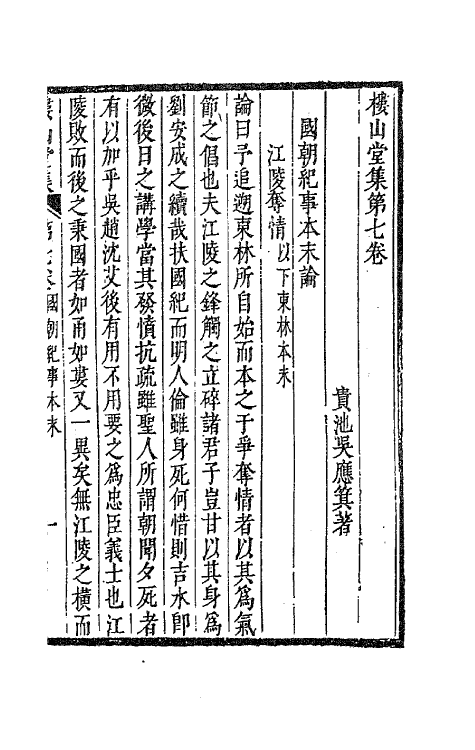 樓山堂集第七卷
貴池吳應箕著
國朝紀事本末論
江陵奪情以下東林本末
論曰予追遡東林所自始而本之于爭奪情者以其為氣
節之倡也夫江陵之鋒觸之立碎諸君子豈甘以其身為
劉安成之續哉扶國紀而明人倫雖身死何惜則吉水卽
微後日之講學當其發憤抗疏雖聖人所謂朝聞夕死者
有以加乎吳趙沈艾後有用不用要之為忠臣義士也江
陵敗而後之秉國者如甬如婁又一異矣無江陵之橫而
樓山堂集 第七卷 國朝紀事本末 一